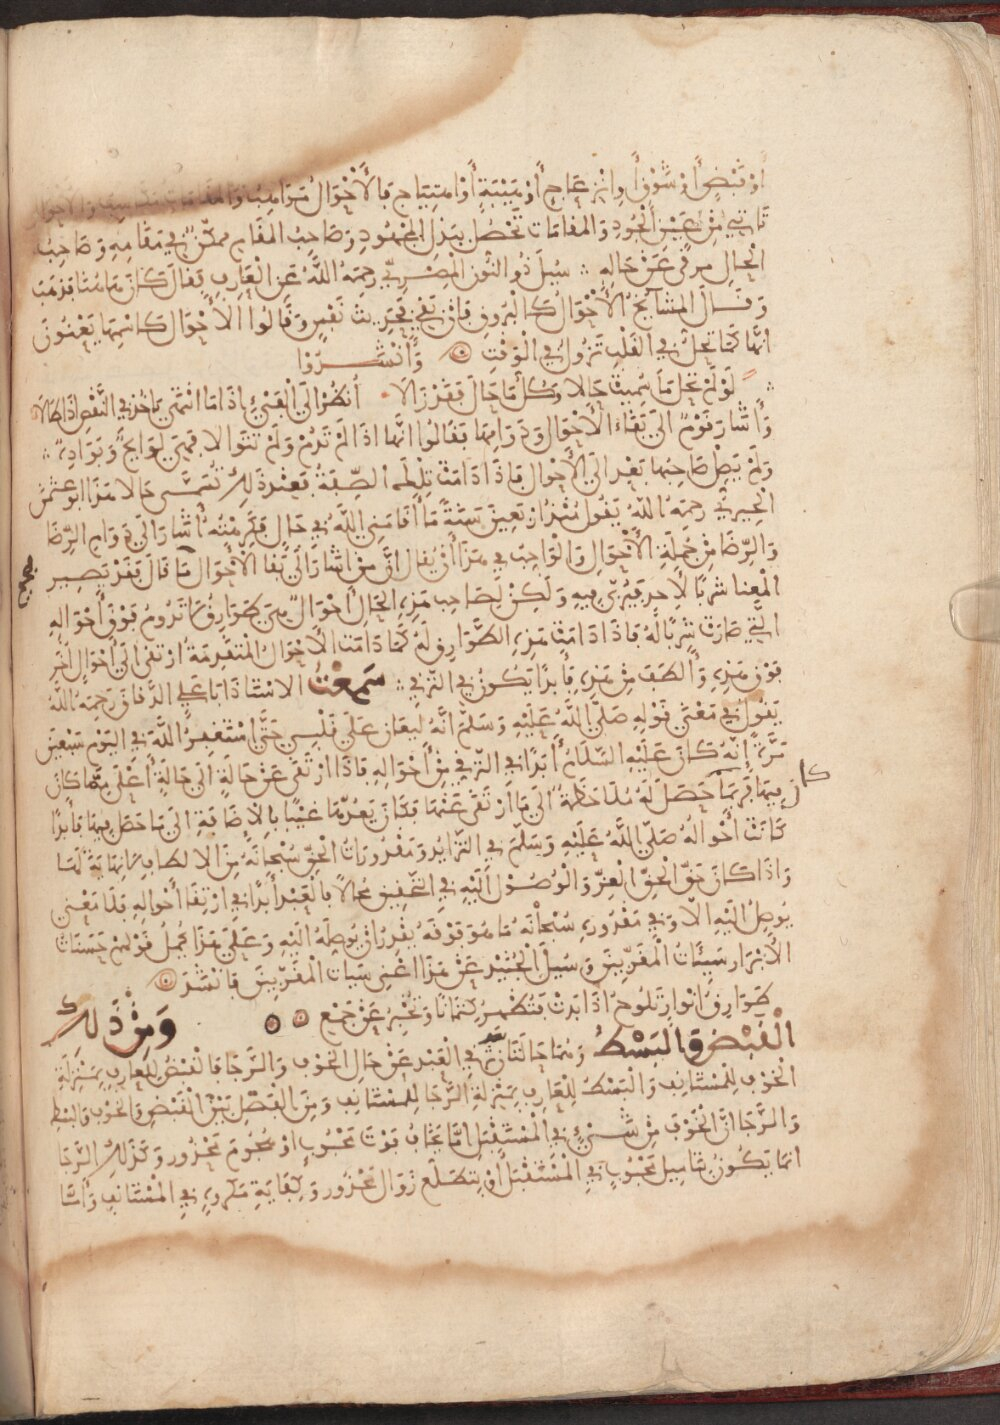 او قبضٍ أو شوقٍ أو انزعاجٍ أو هيبةٍ أو اهتياج فالأحوال مواهب والمقامات مكاسب والاحوال
تاتي من عين الجود والمقامات تحصل ببذل المجهود وصاحب المقام ممكّن في مقامه وصاحب
الحال مرقى عن حاله ∴ سيل ذو النون المصري رحمه الله عن العارف فقال كان هاهنا فذهب
وقال المشايخ الأحوال كالبروق فان بقي فحديث نفس وقالوا الأحوال كاسمها يعنون
انها كما تحل في القلب تزول في الوقت وأنشدوا
لو لم تحل ما سميت حالا وكل ما حال فقد زالا أنظر الى الفيء اذا ما انتهى ياخذ في النقص اذا طالا
وأشار قوم الى بقاء الأحوال ودوامها فقالوا انها اذا لم تدم ولم تتوالا فهي لوايح وبواده ∴
ولم يصل صاحبها بعد الى الأحوال فاذا دامت تلك الصفة فعند ذلك تسمى حالا هذا ابو عثمن
الحيري رحمه الله يقول منذ اربعين سنة ما أقامني الله في حال فكرهته أشار الى دوام الرضا
والرضا من جملة الأحوال والواجب في هذا أن يقال ان من اشار الى بقا الأحوال ما قال فقد يصير
صحيح
المعنا شربا لأحد فيربى فيه ولكن لصاحب هذه الحال أحوال هي طوارق لا تدوم فوق أحواله
التي صارت شربا له فاذا دامت هذه الطوارق له كما دامت الأحوال المتقدمة ارتقى الى أحوال أخر
فوق هذه وألطف من هذه فأبدا يكون في الترقي ∴ سمعت الاستاذ ابا علي الدقاق رحمه الله
يقول في معنى قوله صلى الله عليه وسلم انه ليغان على قلبي حتى استغفر الله في اليوم سبعين
مرة إنه كان عليه السلام أبدا في الترقي من أحواله فاذا ارتقى عن حالة الى حالة أعلى مما كان
كان
فيها فربما حصل له ملاحظة الى ما ارتقى عنها فكان يعدها غينا بالإضافة الى ما حصل فيها فأبدا
كانت أحواله صلى الله عليه وسلم في التزايد ومقدورات الحق سبحانه من الالطاف لا نهاية لها
واذا كان حق الحق العز والوصول اليه في التحقيق محالاً فالعبد أبدا في ارتقا أحواله فلا معنى
يوصل اليه الا وفي مقدوره سبحانه ما هو فوقه يقدر ان يوصله اليه وعلى هذا يحمل قولهم حسنات
الأبرار سيئات المقربين وسيل الجنيد عن هذا اعني سيات المقربين فانشد
طوارق أنوار تلوح اذا بدت فتظهر كتمانا وتخبر عن جمع ومن ذلك
القبض والبسط وهما حالتان بعد ترقي العبد عن حال الخوف والرجا فالقبض للعارف بمنزلة
الخوف للمستانف والبسط للعارف بمنزلة الرجا للمستانف ومن الفصل بين القبض والخوف والبسط
والرجا ان الخوف من شيء في المستقبل اما يخاف فوت محبوب او هجوم محذور وكذلك الرجا
انما يكون بتاميل محبوب في المستقبل أو بتطلع زوال محذور وكفاية مكروه في المستانف وأما